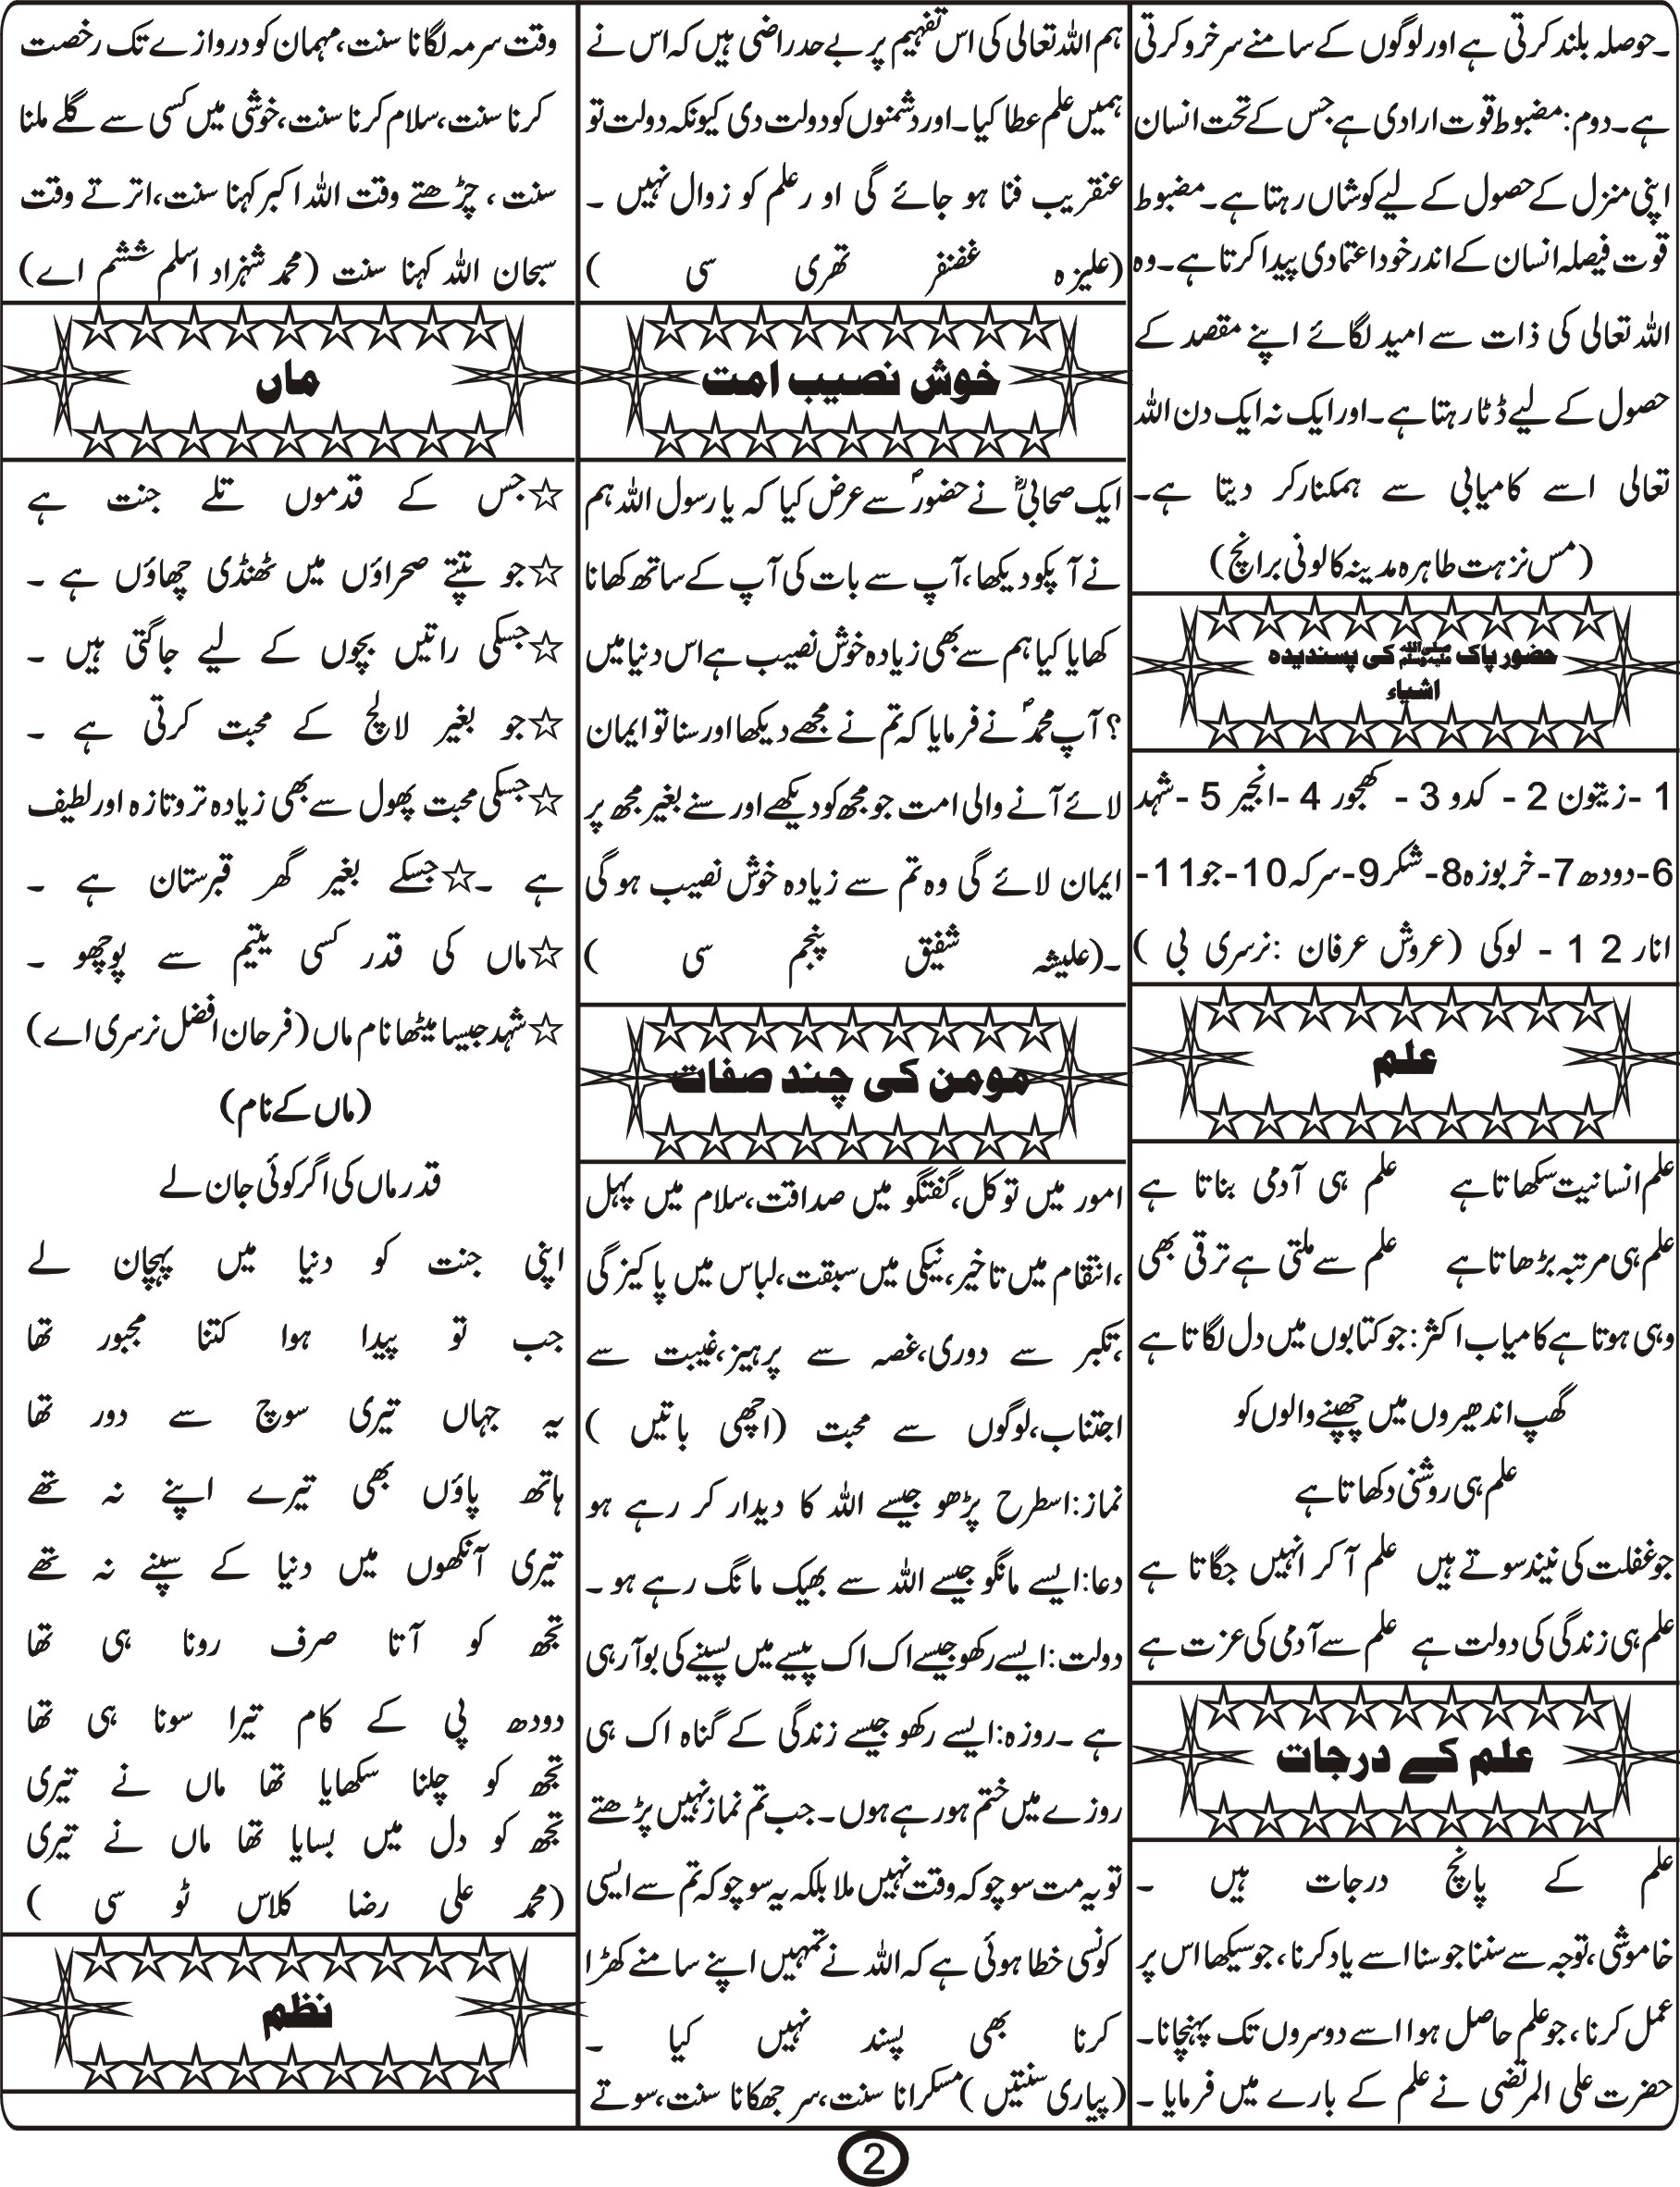 ۔حوصلہ بلند کرتی ہے اور لوگوں کے سامنے سرخرو کرتی
ہے۔دوم:مضبوط قوت ارادی ہے جس کے تحت انسان
اپنی منزل کے حصول کے لیے کوشاں رہتا ہے۔مضبوط
قوت فیصلہ انسان کے اندر خود اعتمادی پیدا کرتا ہے۔وہ
اللہ تعالی کی ذات سے امید لگائے اپنے مقصد کے
حصول کے لیے ڈٹا رہتا ہے۔اور ایک نہ ایک دن اللہ
تعالی اسے کامیابی سے ہمکنار کر دیتا ہے۔
(مس نزہت طاہرہ مدینہ کالونی برانچ)
حضور پاک ﷺ کی پسندیدہ
اشیاء
1 -زیتون 2 - کدو 3 - کھجور 4 -انجیر 5 -شہد
6-دودھ7-خربوزہ8-شکر9-سرکہ10-جو11-
انار 12 - لوکی (عروش عرفان :نرسری بی )
علم
علم انسانیت سکھاتا ہے علم ہی آدمی بناتا ہے
علم ہی مرتبہ بڑھاتا ہے علم سے ملتی ہے ترقی بھی
وہی ہوتا ہے کامیاب اکثر:جو کتابوں میں دل لگاتا ہے
گھپ اندھیروں میں چھپنے والوں کو
علم ہی روشنی دکھاتا ہے
جو غفلت کی نیند سوتے ہیں علم آ کر انہیں جگاتا ہے
علم ہی زندگی کی دولت ہے علم سے آدمی کی عزت ہے
علم کے درجات
علم کے پانچ درجات ہیں ۔
خاموشی،توجہ سے سننا جو سنا اسے یاد کرنا ، جو سیکھا اس پر
عمل کرنا ، جو علم حاصل ہوا اسے دوسروں تک پہنچانا۔
حضرت علی المرتضی نے علم کے بارے میں فرمایا ۔
ہم اللہ تعالی کی اس تفہیم پر بے حد راضی ہیں کہ اس نے
ہمیں علم عطا کیا۔اور دشمنوں کو دولت دی کیونکہ دولت تو
عنقریب فنا ہو جائے گی او رعلم کو زوال نہیں ۔
(علیزہ غضنفر تھری سی )
خوش نصیب امت
ایک صحابیؓ نے حضورؐ سے عرض کیا کہ یا رسول اللہ ہم
نے آپکو دیکھا،آپ سے بات کی آپ کے ساتھ کھانا
کھایا کیا ہم سے بھی زیادہ خوش نصیب ہے اس دنیا میں
؟ آپ محمدؐ نے فرمایا کہ تم نے مجھے دیکھا اور سنا تو ایمان
لائے آنے والی امت جو مجھ کو دیکھے اور سنے بغیر مجھ پر
ایمان لائے گی وہ تم سے زیادہ خوش نصیب ہو گی
۔(علیشہ شفیق پنجم سی )
مومن کی چند صفات
امور میں توکل،گفتگو میں صداقت،سلام میں پہل
،انتقام میں تاخیر،نیکی میں سبقت،لباس میں پاکیزگی
،تکبر سے دوری،غصہ سے پرہیز،غیبت سے
اجتناب،لوگوں سے محبت (اچھی باتیں )
نماز:اسطرح پڑھو جیسے اللہ کا دیدار کر رہے ہو
دعا:ایسے مانگو جیسے اللہ سے بھیک مانگ رہے ہو ۔
دولت:ایسے رکھو جیسے اک اک پیسے میں پسینے کی بو آ رہی
ہے ۔روزہ:ایسے رکھو جیسے زندگی کے گناہ اک ہی
روزے میں ختم ہو رہے ہوں۔جب تم نماز نہیں پڑھتے
تو یہ مت سوچو کہ وقت نہیں ملا بلکہ یہ سوچو کہ تم سے ایسی
کونسی خطا ہوئی ہے کہ اللہ نے تمہیں اپنے سامنے کھڑا
کرنا بھی پسند نہیں کیا ۔
(پیاری سنتیں )مسکرانا سنت،سر جھکانا سنت،سوتے
وقت سرمہ لگانا سنت،مہمان کو دروازے تک رخصت
کرنا سنت،سلام کرنا سنت،خوشی میں کسی سے گلے ملنا
سنت ، چڑھتے وقت اللہ اکبر کہنا سنت،اترتے وقت
سبحان اللہ کہنا سنت (محمد شہزاد اسلم ششم اے)
ماں
☆جس کے قدموں تلے جنت ہے
☆جو تپتے صحراؤں میں ٹھنڈی چھاؤں ہے ۔
☆جسکی راتیں بچوں کے لیے جاگتی ہیں ۔
☆جو بغیر لالچ کے محبت کرتی ہے ۔
☆جسکی محبت پھول سے بھی زیادہ تروتازہ اور لطیف
ہے ۔☆جسکے بغیر گھر قبرستان ہے ۔
☆ماں کی قدر کسی یتیم سے پوچھو ۔
☆شہد جیسا میٹھا نام ماں (فرحان افضل نرسری اے)
(ماں کے نام)
قدر ماں کی اگر کوئی جان لے
اپنی جنت کو دنیا میں پہچان لے
جب تو پیدا ہوا کتنا مجبور تھا
یہ جہاں تیری سوچ سے دور تھا
ہاتھ پاؤں بھی تیرے اپنے نہ تھے
تیری آنکھوں میں دنیا کے سپنے نہ تھے
تجھ کو آتا صرف رونا ہی تھا
دودھ پی کے کام تیرا سونا ہی تھا
تجھ کو چلنا سکھایا تھا ماں نے تیری
تجھ کو دل میں بسایا تھا ماں نے تیری
(محمد علی رضا کلاس ٹو سی )
نظم
2